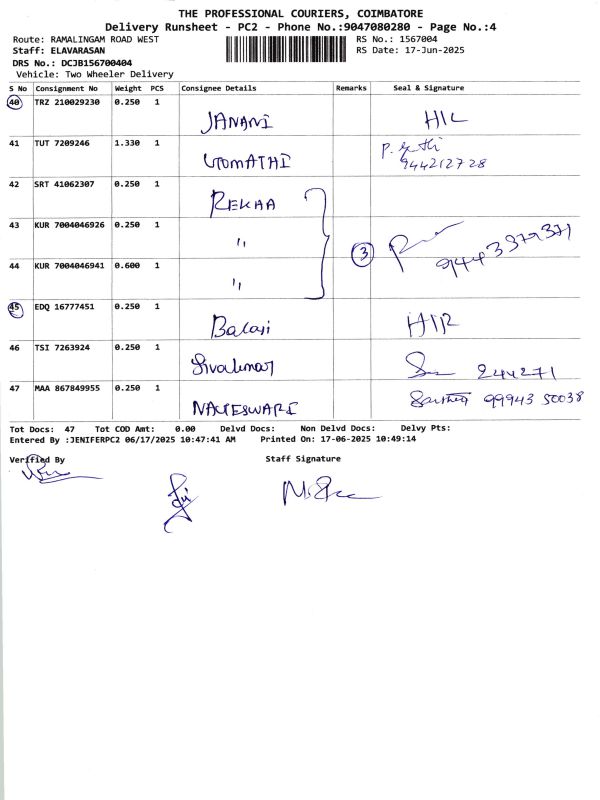 THE PROFESSIONAL COURIERS, COIMBATORE
Delivery Runsheet - PC2 - Phone No.:9047080280 - Page No.:4
Route: RAMALINGAM ROAD WEST RS No.: 1567004
Staff: ELAVARASAN RS Date: 17-Jun-2025
DRS No.: DCJB156700404
Vehicle: Two Wheeler Delivery
S No Consignment No Weight PCS Consignee Details Remarks Seal & Signature
40 TRZ 210029230 0.250 1 JANANI H/L
41 TUT 7209246 1.330 1 GOMATHI
944212728
42 SRT 41062307 0.250 1 REKHA
43 KUR 7004046926 0.250 1 " 3
44 KUR 7004046941 0.600 1 "
45 EDQ 16777451 0.250 1 Balaji H/R
46 TSI 7263924 0.250 1 Sivakumar 244271
47 MAA 867849955 0.250 1 99943 50038
Tot Docs: 47 Tot COD Amt: 0.00 Delvd Docs: Non Delvd Docs: Delvy Pts:
Entered By :JENIFERPC2 06/17/2025 10:47:41 AM Printed On: 17-06-2025 10:49:14
Verified By Staff Signature